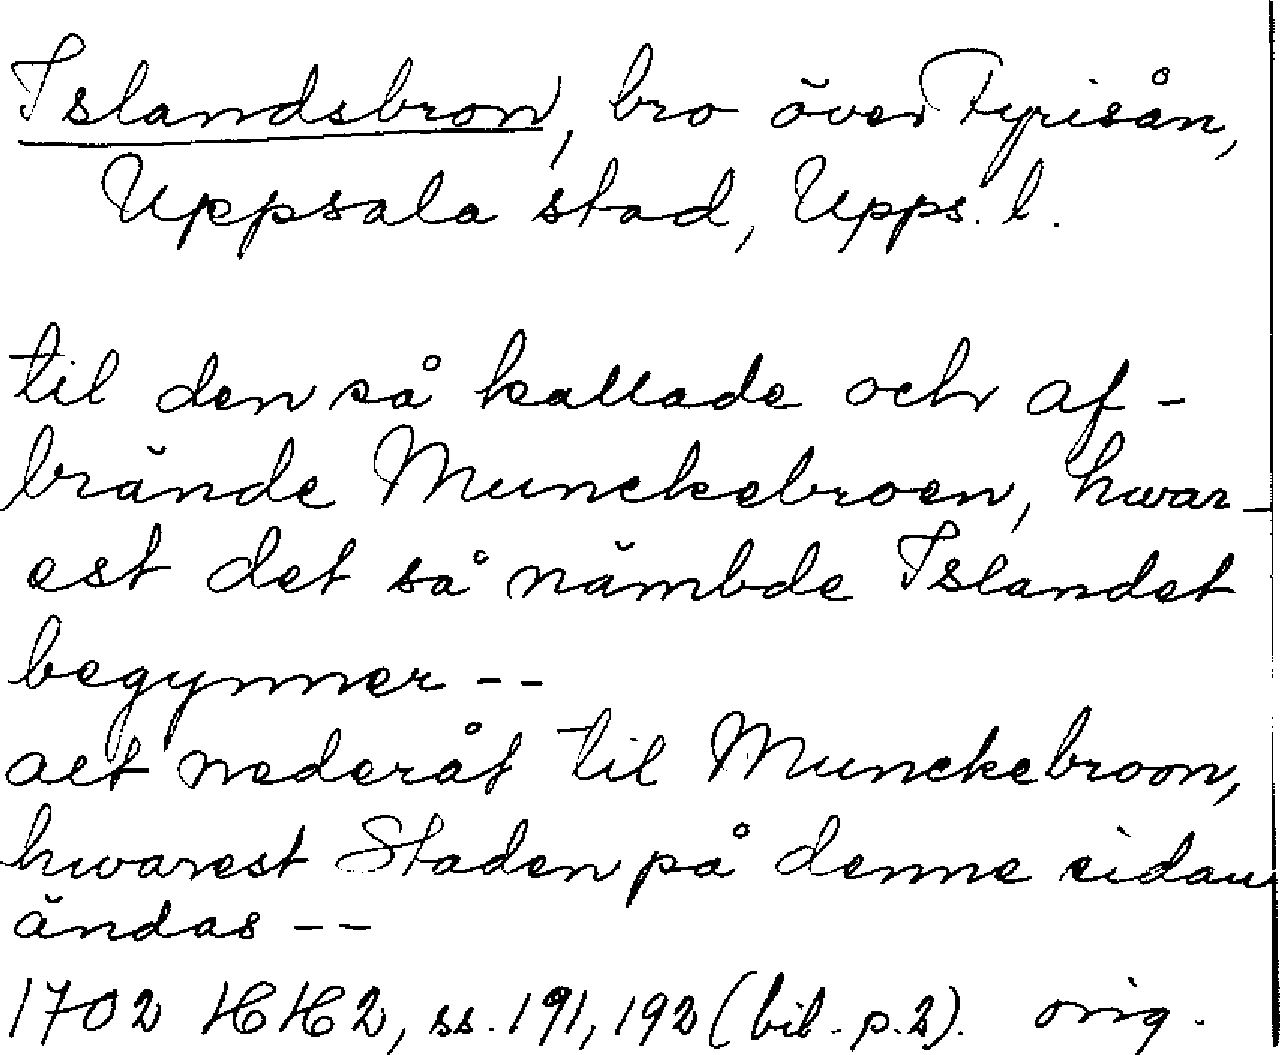 Islandsbron, bro över Fyrisån,
Uppsala stad, Upps. l.
til den så kallade och af-
brände Munckebroen, hwar-
est det så nämbde Islandet
begynner --
alt nederåt til Munckebroon,
hwarest Staden på denne sidan
ändas --
1702 HH2, ss. 191, 192 (bil. p. 2). orig.